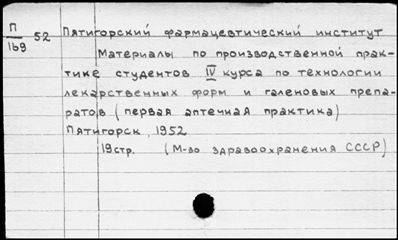 П
169 52 Пятигорский фармацевтический институт
Материалы по производственной прак-
тике студентов IV курса по технологии
лекарственных форм и галеновых препа-
ратов (первая аптечная практика)
Пятигорск, 1952
19стр. (М-во здравоохранения СССР)